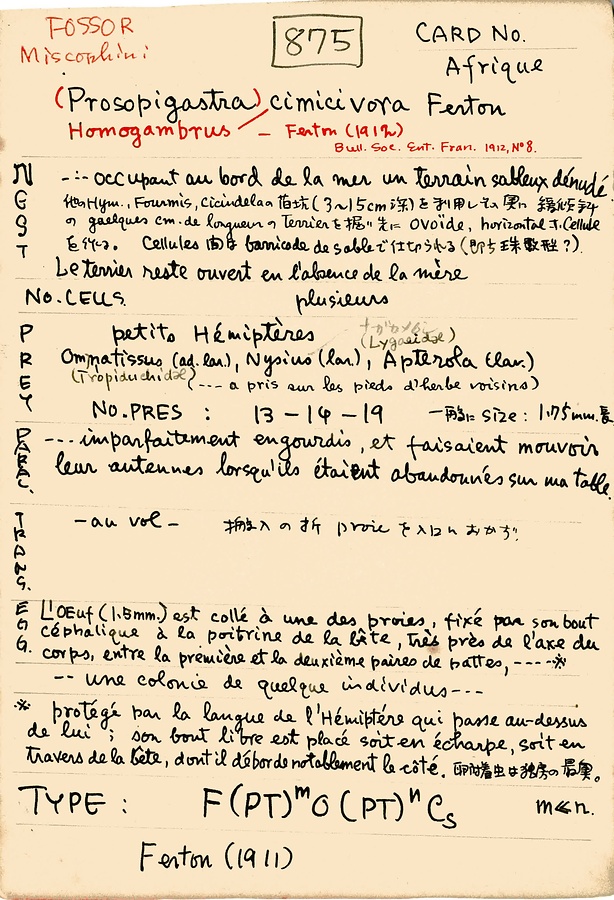 FOSSOR
Miscophini
875
CARD No.
Afrique
(Prosopigastra) cimicivora Ferton
Homogambrus — Ferton (1912)
Bull. Soc. Ent. Fran. 1912, No 8.
NEST
--- occupant au bord de la mer un terrain sableux dénudé
他のHym., Fourmis, Cicindelaの 坑 (3~15cm深) を利用してその奥に 緩傾斜
の quelques cm. de longueur の Terrierを掘り先に ovoïde, horizontal な Cellule
を作る。 Cellules 間は barricade de sableで仕切られる (即ち珠数型?).
Le terrier reste ouvert en l'absence de la mère
No. CELLS.
plusieurs
PREY
petits Hémiptères
(Lygaeidae)
Ommatissus (ad. lar.), Nysius (lar.), Apterola (lar.)
(Tropiduchidae)
(--- a pris sur les pieds d'herbe voisins)
No. PRES : 13 - 14 - 19
size : 1.75mm.長
PARAL.
--- imparfaitement engourdis, et faisaient mouvoir
leur antennes lorsqu'ils étaient abandonnés sur ma table.
TRANS.
- au vol -
搬入の折 proie を入口におかず
EGG.
L'OEuf (1.5mm.) est collé à une des proies, fixé par son bout
céphalique à la poitrine de la bête, très près de l'axe du
corps, entre la première et la deuxième paires de pattes, ----※
-- une colonie de quelque individus---
※ protégé par la langue de l'Hémiptére qui passe au-dessus
de lui ; son bout libre est placé soit en écharpe, soit en
travers de la bête, dont il déborde notablement le côté. 卵附着虫は独房の最奥。
TYPE : F(PT)ᵐO(PT)ⁿCs
m≪n.
Ferton (1911)